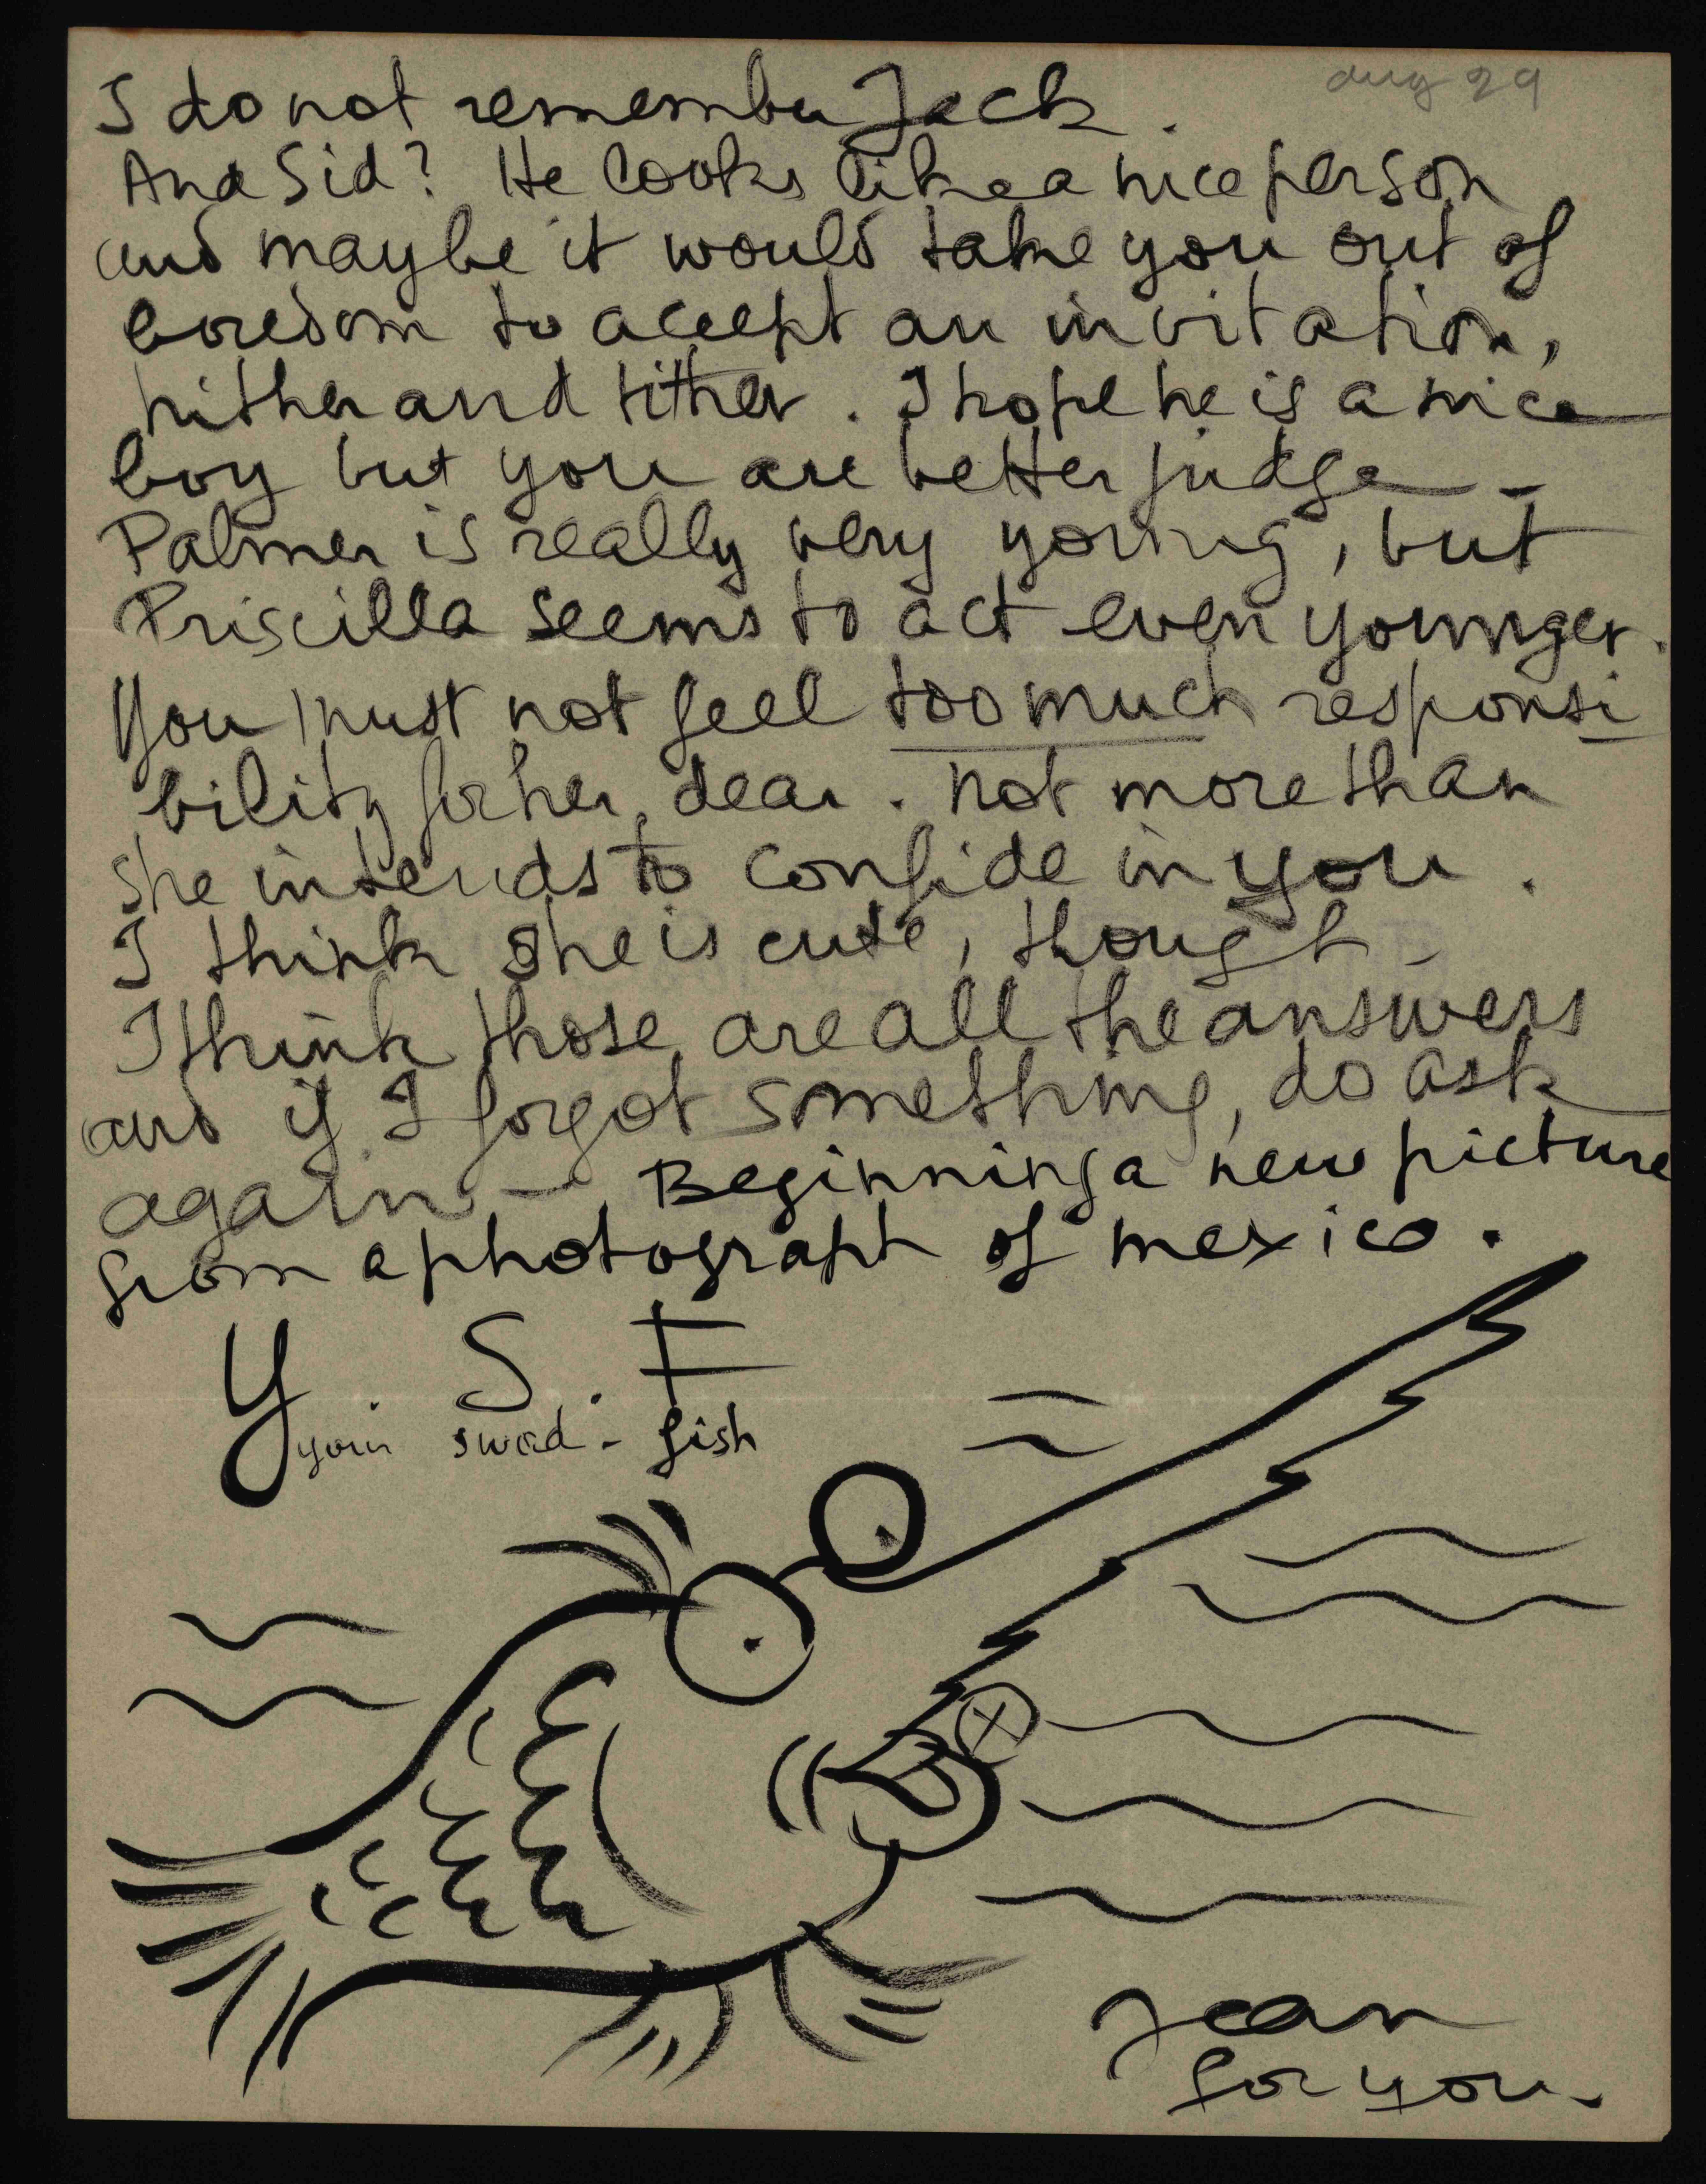 aug 29
I do not remember Jack.
And Sid? He looks like a nice person
and maybe it would take you out of
boredom to accept an invitation,
hither and tither. I hope he is a nice
boy but you are better judge -
Palmer is really very young, but
Priscilla seems to act even younger.
You must not feel too much responsi
bility for her, dear. not more than
she intends to confide in you.
I think she is cute, though -
I think those are all the answers
and if I forgot something, do ask
again — Beginning a new picture
from a photograph of mexico.
Y. S. F
your swod - fish
Jean
for you -